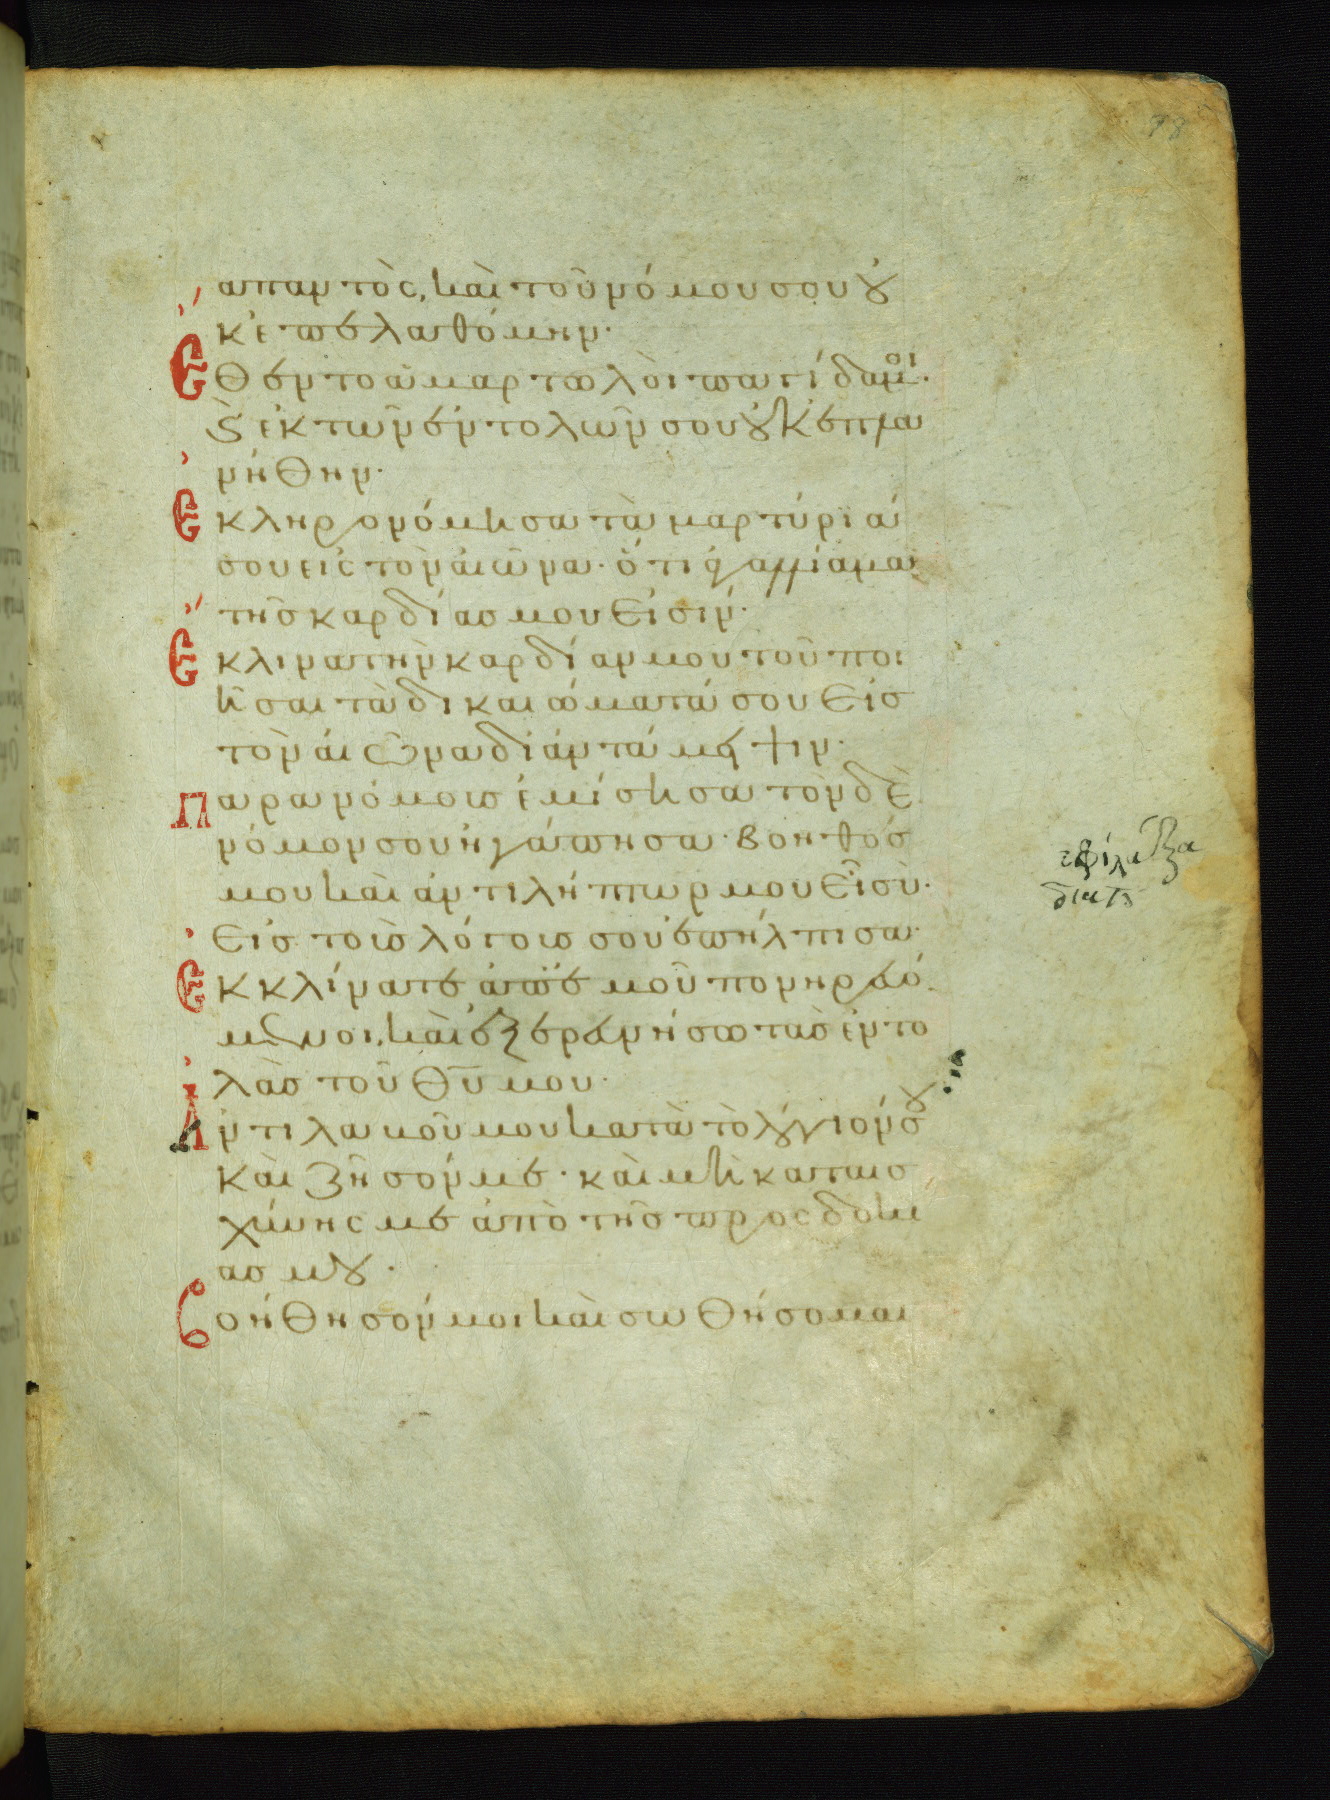 απαντὸς, καὶ τοῦ νόμου σου ȣ̓
κ ἐπελαθόμην·
Ἔθεντο ἁμαρτωλοὶ παγίδα μοι·
ϗ ἐκ τῶν ἐντολῶν σου ȣ̓κ ἐπλα
νήθην·
Ἐκληρονόμησα τὰ μαρτύριά
σου εἰς τὸν αἰῶνα· ὅτι ἀγαλλίαμα
τῆς καρδίας μου εἰσίν·
Ἔκλινα τὴν καρδίαν μου τοῦ ποι
ῆσαι τὰ δικαιώματά σου εἰς
τὸν αἰῶνα δι ἀντάμειψιν·
Παρανόμους ἐμίσησα τὸν δὲ
νόμον σου ἠγάπησα· βοηθός
μου καὶ ἀντιλήπτωρ μου εἶ σὺ·
Εἰς τοὺς λόγους σου ἐπήλπισα·
Ἐκκλίνατε ἀπ' ἐμοῦ πονηρευό
μενοι, καὶ ἐξερευνήσω τὰς ἐντο
λὰς τοῦ Θῦ μου·
Ἀντιλαβοῦ μου κατὰ τὸ λόγιόν σȣ
καὶ ζῆσόν με· καὶ μὴ καταισ
χύνῃς με ἀπὸ τῆς προσδοκί
ας μȣ·
Βοήθησόν μοι καὶ σωθήσομαι